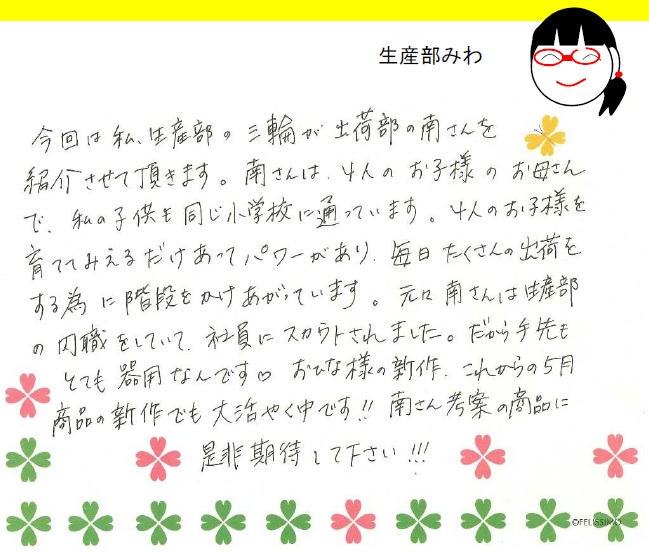 生産部みわ
今回は私、生産部の三輪が出荷部の南さんを
紹介させて頂きます。南さんは、4人のお子様のお母さん
で、私の子供も同じ小学校に通っています。4人のお子様を
育ててみえるだけあってパワーがあり、毎日たくさんの出荷を
する為に階段をかけあがっています。元々南さんは生産部
の内職をしていて、社員にスカウトされました。だから手先も
とても器用なんです♡ おひな様の新作、これからの5月
商品の新作でも大活やく中です!! 南さん考案の商品に
是非期待して下さい!!!
©FELISSIMO